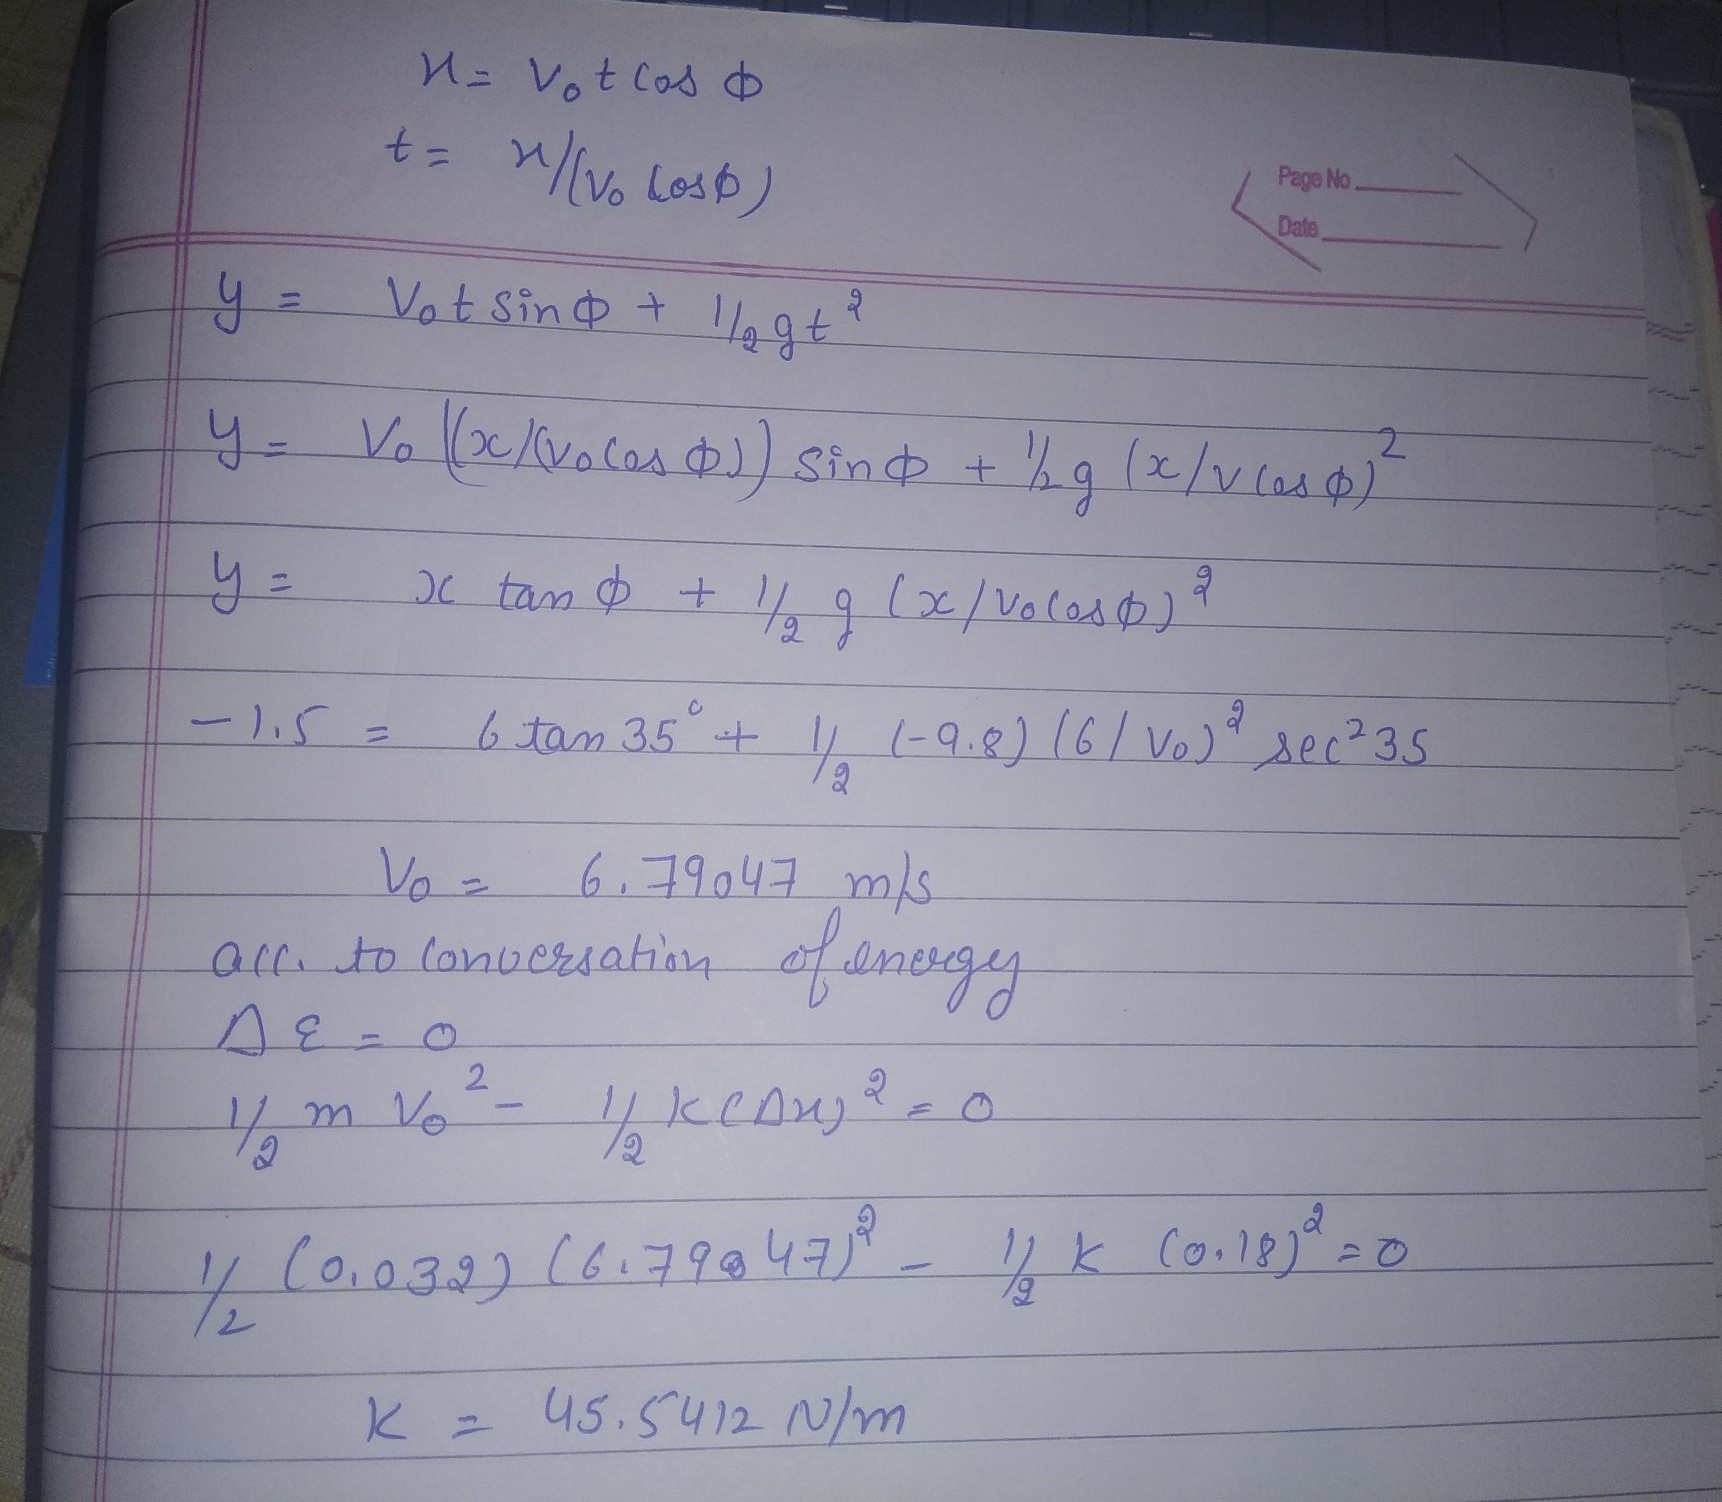 x = V₀ t cos ϕ
t = x/(V₀ cosϕ)
Page No
Date
y = V₀ t sin ϕ + 1/2 gt²
y = V₀ ((x/(V₀ cos ϕ)) sin ϕ + 1/2 g (x/v cos ϕ)²
y = x tan ϕ + 1/2 g (x/V₀ cos ϕ)²
-1.5 = 6 tan 35° + 1/2 (-9.8) (6/V₀)² sec² 35
V₀ = 6.79047 m/s
acc. to conversation of energy
Δ E = 0
1/2 m V₀² - 1/2 K (Δx)² = 0
1/2 (0.032) (6.79047)² - 1/2 K (0.18)² = 0
K = 45.5412 N/m